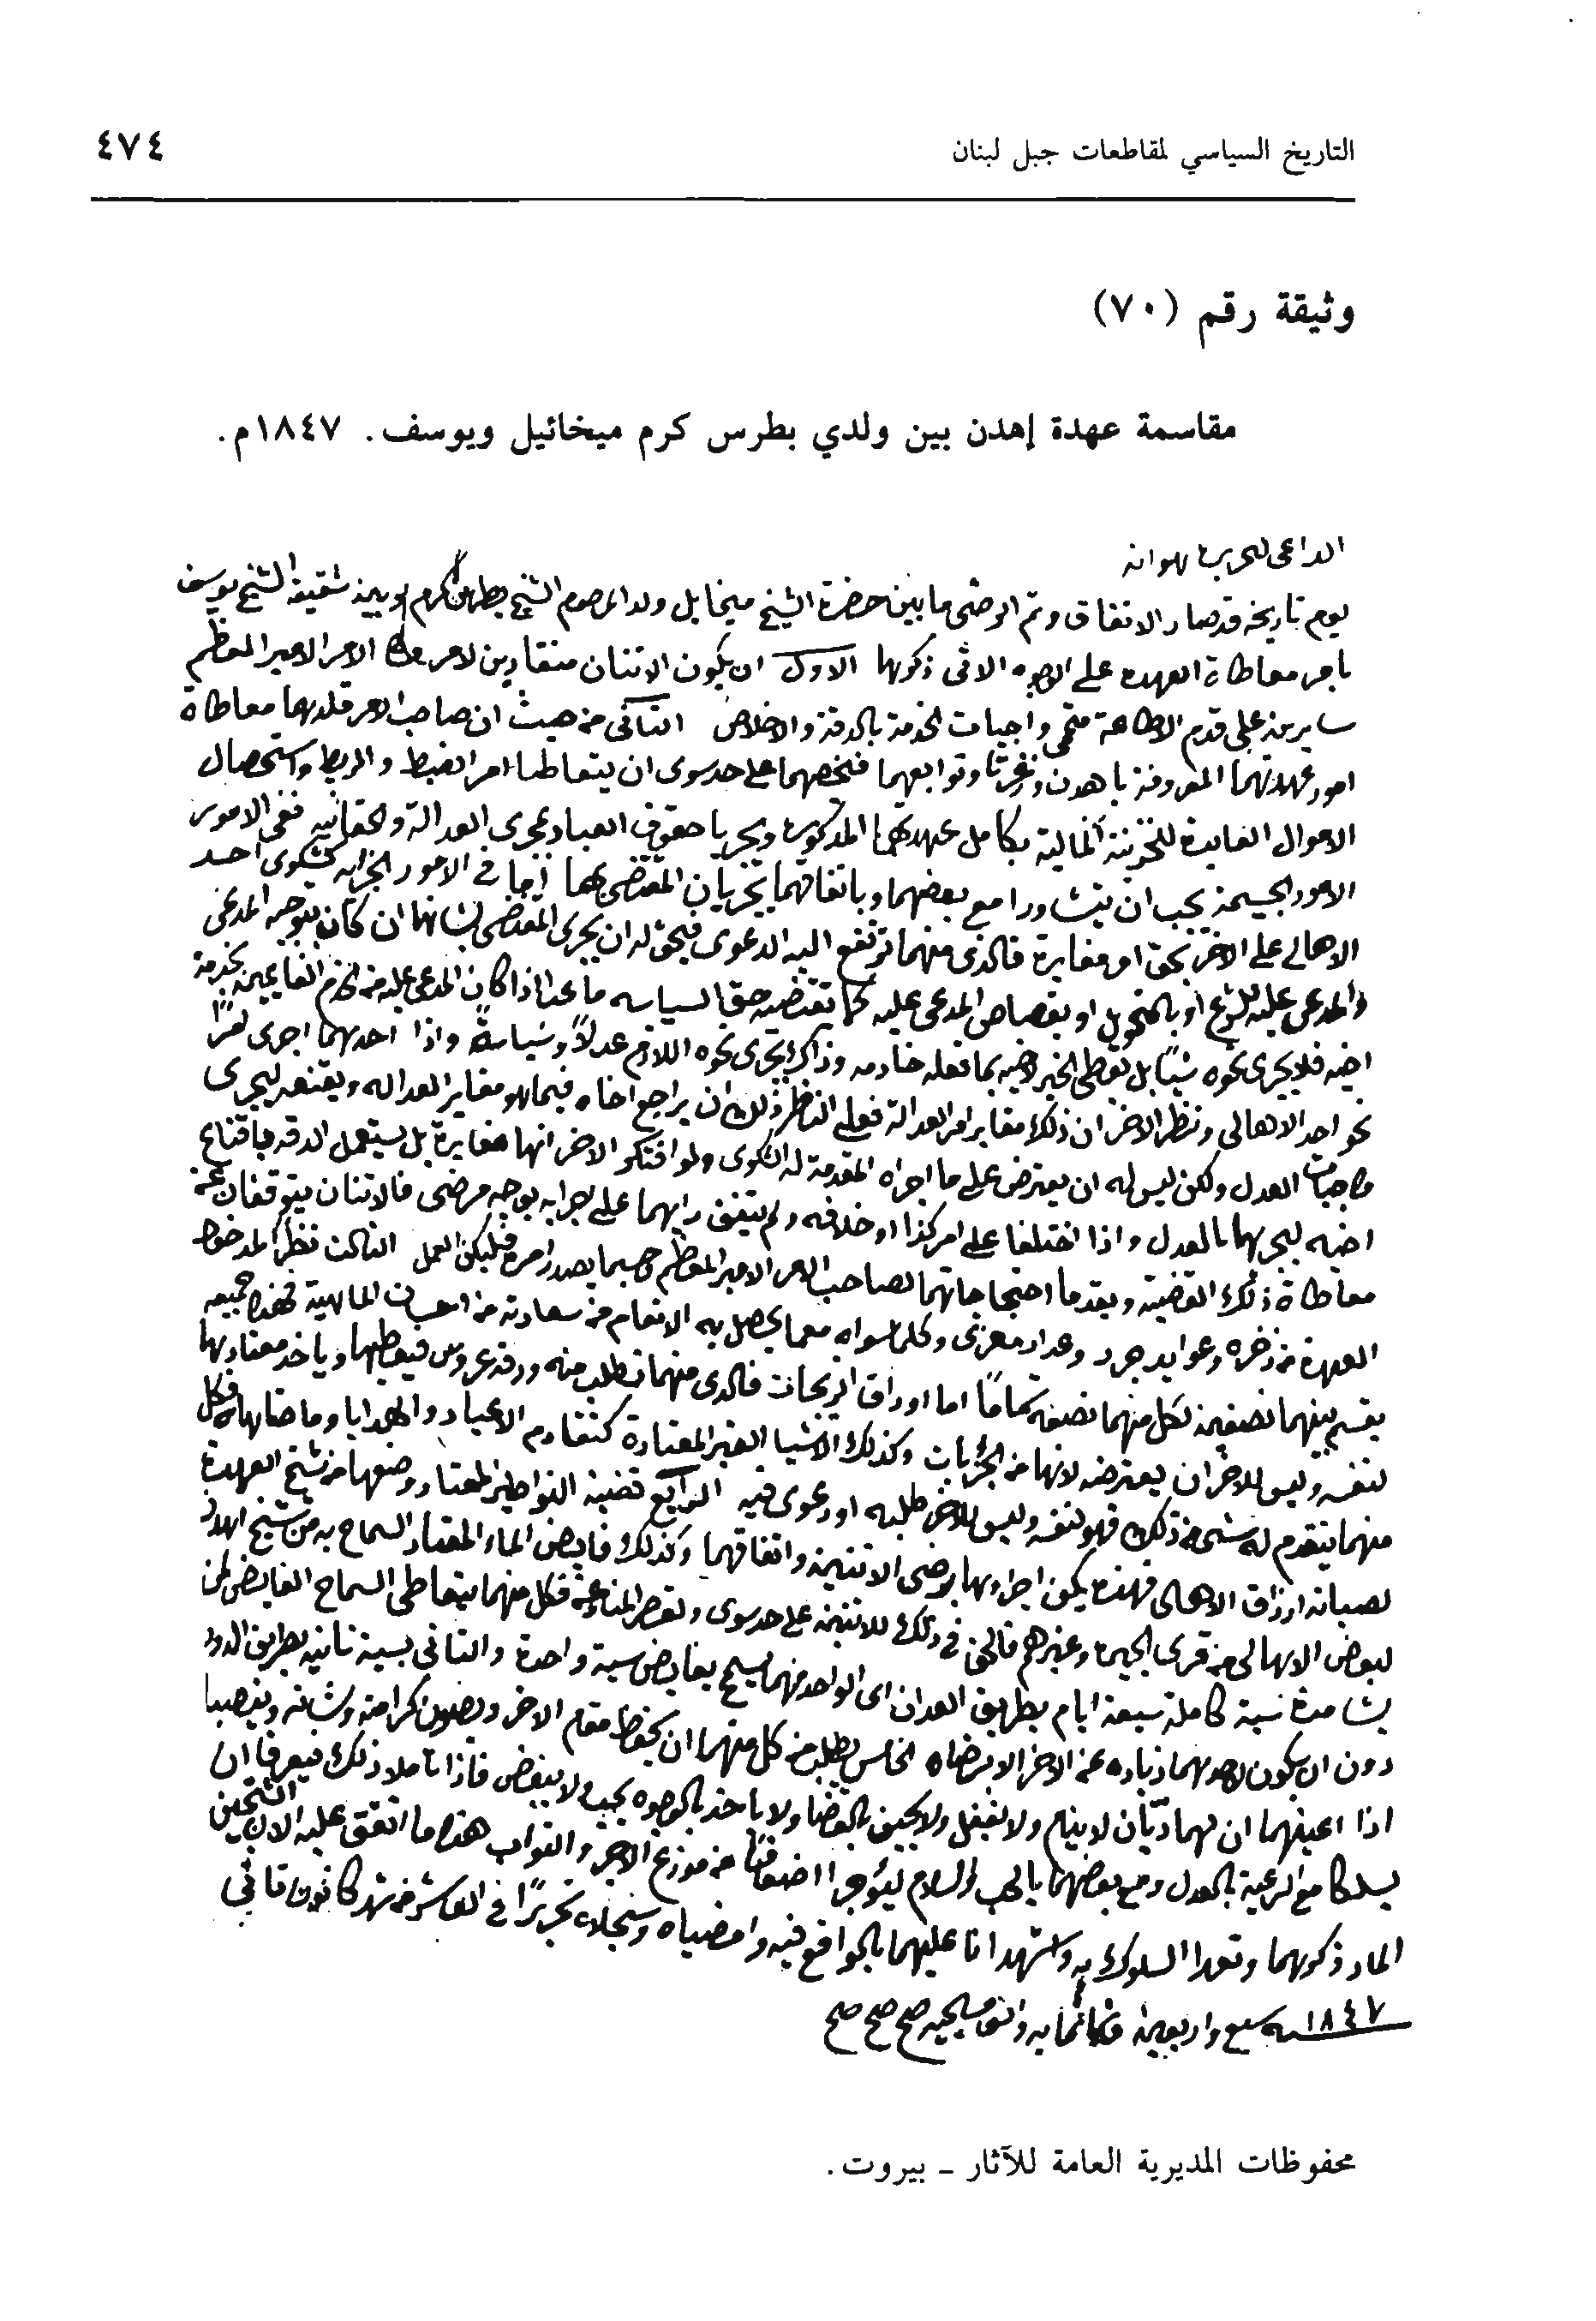 التاريخ السياسي لمقاطعات جبل لبنان ٤٧٤
وثيقة رقم (٧٠)
مقاسمة عهدة إهدن بين ولدي بطرس كرم ميخائيل ويوسف. ١٨٤٧م.
الداعي لتحريره هوانه
يوم تاريخه قد صار الاتفاق وتم الرضى ما بين حضرة الشيخ ميخايل ولد المرحوم الشيخ بطرس كرم وبين شقيقه الشيخ يوسف
بامر معاطاة العهده على الاوجه الاتى ذكرها الاول ان يكون الاتنان منقادين لامر الامر الامير المعظم
سايرين على قدم الاطاعة متممى واجبات الخدمة بالدقة والاخلاص التانى من حيث ان صاحب الامر قلدهما معاطاة
امور عهدتهما المعروفة باهدن وتوابعهما فيخصهما على حد سوى ان يتعاطيا امر الضبط والربط واستحصال
الاموال العايدة للخزينة المالية بكامل عهدتهما المذكوره ويجريا حقوق العباد بمجرى العدالة والحقانيه ففى الامور
الامور الجسيمة يجب ان يتشاورا مع بعضهما وباتفاقهما يجريان المقتضى بها اما فى الامور الجزايه كشكوى احد
الاهالى على الاخر بحق او مغايرة فالذى منهما ترتفع اليه الدعوى فيحق له ان يجرى المقتضى بشانها ان كان بتوجيه المدعى
والمدعى عليه للشرع او بالتحويل او بقصاص المدعى عليه كما تقتضيه حق السياسه ما عدا اذا كان المدعى عليه من الخدم القايمين بخدمة
اخيه فلا يجرى نحوه شيئا بل يعطى الخبر لاخيه بما فعله خادمه وذاك يجرى نحوه اللازم عدلاً وسياسةً واذا احدهما اجرى امرًا
نحو احد الاهالى ونظر الاخر ان ذلك مغاير امر العدالة فعلى الناظر ذلك ان يراجع اخاه فيما هو مغاير العداله ويقنعه ليجرى
واجبات العدل ولكن ليس له ان يعترض على ما اجراه المقدمة له الشكوى ولو افتكر الاخر انها مغايرة بل يستعمل الدقه باقناع
اخيه ليجريها بالعدل واذا اختلفا على امر كذا او خلافه ولم يتفق رايهما على اجرايه بوجه مرضى فالاتنان يتوقفان عن
معاطاة ذلك القضية ويقدما احتجاجاتهما لصاحب الامر الامير المعظم وحسبما يصدر امره فليكن العمل التالت نظرا لمدخول
العهدة من ذخره وعوايد جرد وعداد معزى وكلما سواه معما يحصل به الانعام من سعادته من احسان الماهية فهذا جميعه
يقسم بينهما نصفين لكل منهما نصفه تمامًا اما اوراق الزيجات فالذى منهما تطلب منه ورقة عروس فيعطيها وياخد معتادها
لنفسه وليس للاخر ان يعترضه لانها من الجزيات وكذلك الاشيا الغير المعتادة كتقادم الاعياد والهدايا وما ضاهاها فكل
منهما يتقدم له شى من ذلك فهو لنفسه وليس للاخر طلبه او دعوى فيه الرابع قضية النواطير المعتاد وضعها من شيخ العهدة
لصيانه ارزاق الاهالى فهذه يكون اجراوها برضى الاتنين واتفاقهما وكذلك فايض الماء المعتاد السماح به من شيخ اهدن
لبعض الاهالى من قرى الجبه وغيرهم فالحق فى ذلك للاتنين على حد سوى فكل منهما يتعاطى السماح الفايض لمن
يشا مدة سبة كاملة سبعة ايام بطريق العدان اى الواحد منهما يسمح بفايض سبة واحدة والتانى بسبة تانيه بطريق الدور
دون ان يكون لاحدهما زياده عن الاخر الا برضاه الخامس يطلب من كل منهما ان يحفظ مقام الاخر ويصون كرامته وشانه وينصبا
اذا اعينهما ان لهما ديّان لا ينام ولا يغفل ولا يحيف بالقضا ولا ياخد بالوجوه يحب ولا يبغض فاذا تاملا ذلك فيعرفا ان
يسلكا مع الرعية بالعدل ومع بعضهما بالحب والسلام ليؤجرا اضعافًا من موزع الاجر والتواب هذا ما اتفق عليه الان الشيخين
المار ذكرهما وتعهدا السلوك به واشهدانا عليهما بالواقع فيه وامضياه وسجلاه تحريرًا فى العاشر من شهر كانون تانى
١٨٤٧ سنه سبع واربعين وثمانمايه والف مسيحيه صح صح صح
محفوظات المديرية العامة للآثار - بيروت.